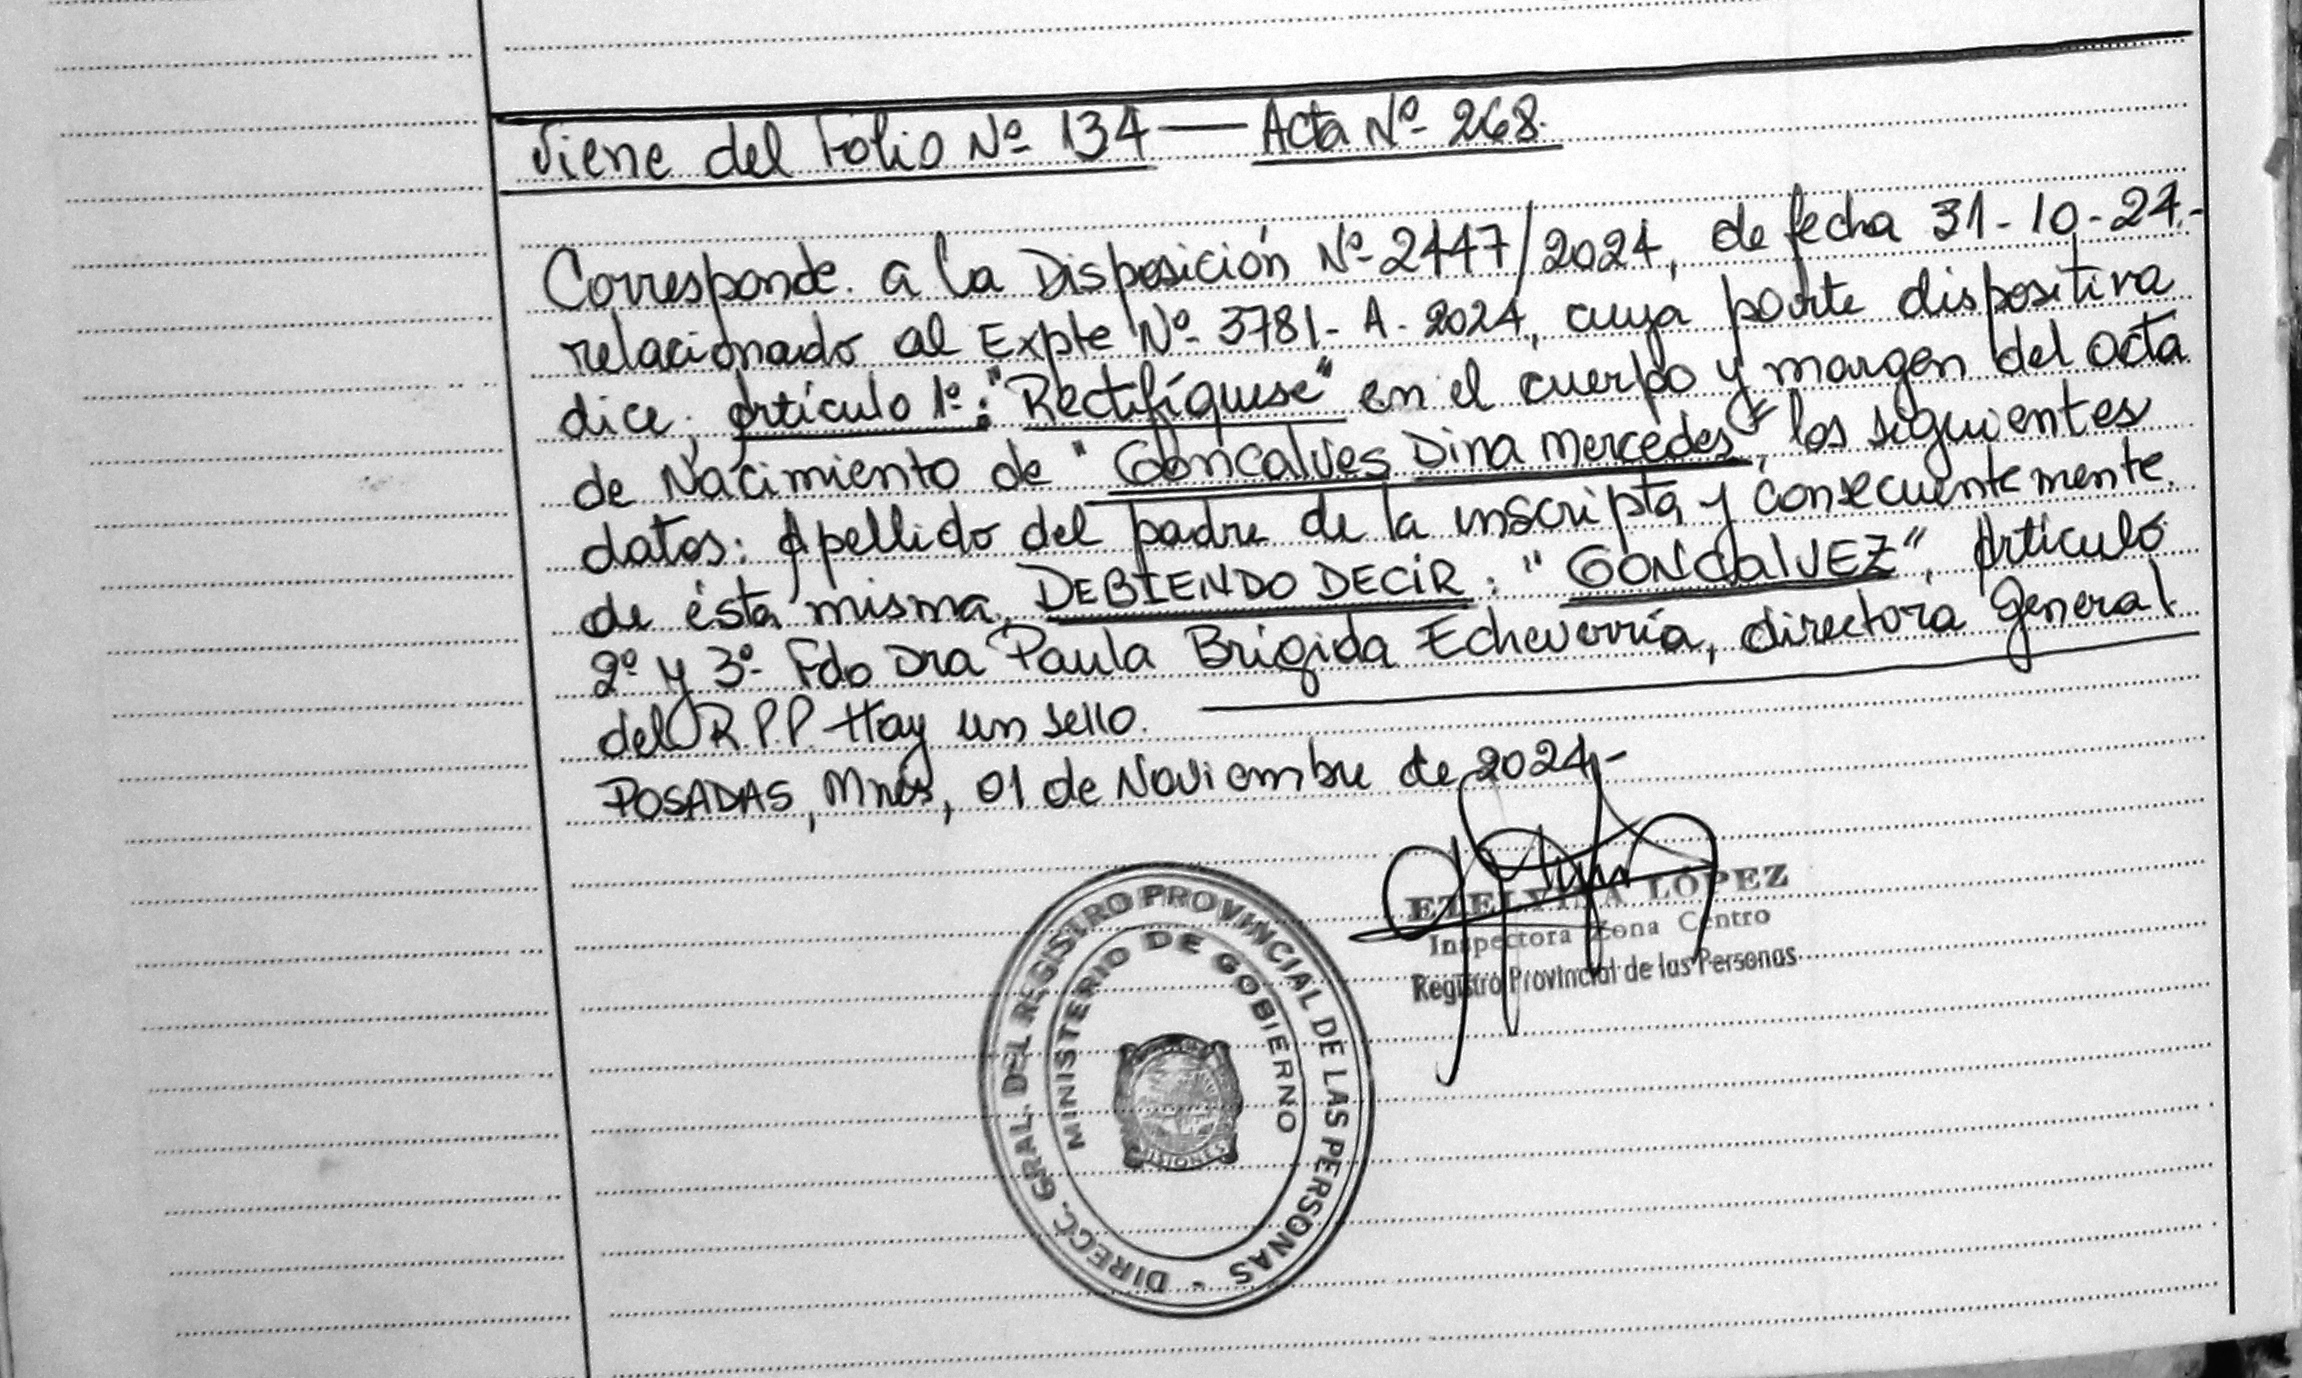 Viene del Folio Nº 134 — Acta Nº 268.
Corresponde. a la Disposición Nº 2447/2024, de fecha 31-10-24.-
relacionado al Expte Nº 3781-A-2024, cuya parte dispositiva
dice; Artículo 1º: "Rectifíquese" en el cuerpo y margen del acta
de Nacimiento de "Goncalves Dina Mercedes", los siguientes
datos: Apellido del padre de la inscripta y consecuentemente.
de ésta misma, DEBIENDO DECIR: "GONCALVEZ", Artículo
2º y 3º- Fdo Dra Paula Brigida Echeverría, directora General
del R.P.P. Hay un sello.
POSADAS, Mnes, 01 de Noviembre de 2024,-
ETELVINA LOPEZ
Inspectora Zona Centro
Registro Provincial de las Personas
DIRECC. GRAL. DEL REGISTRO PROVINCIAL DE LAS PERSONAS -
MINISTERIO DE GOBIERNO
MISIONES